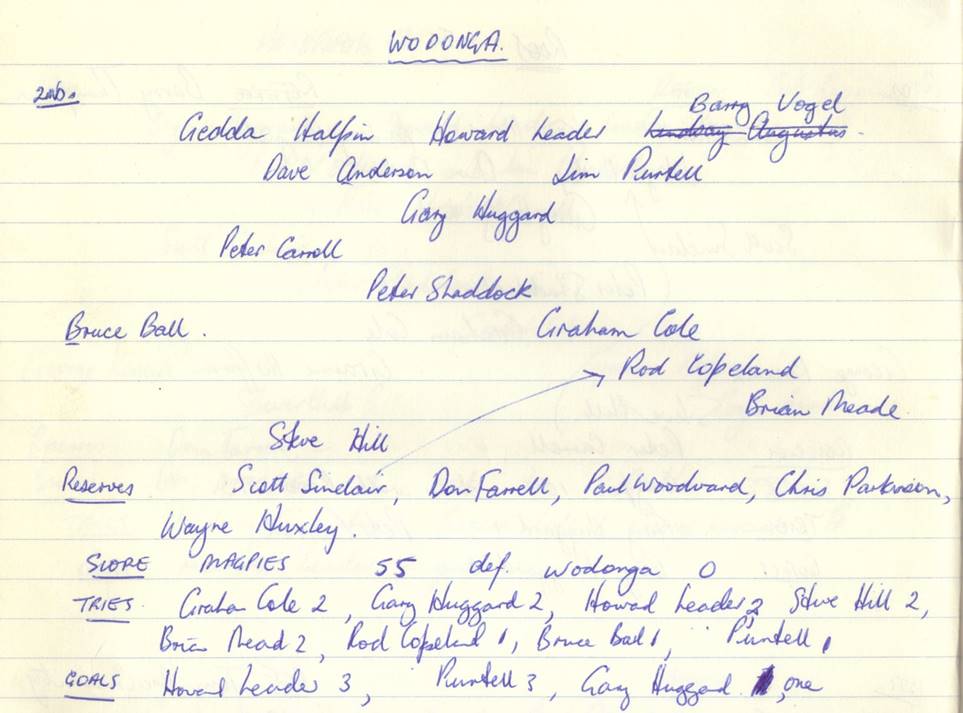 WODONGA.
2nds.
Barry Vogel
Gedda Halpin Howard Leader Lindsay Augustus.
Dave Anderson Jim Purtell
Gary Huggard
Peter Carroll
Peter Shaddock
Bruce Ball. Graham Cole
Rod Copeland
Brian Meade.
Steve Hill
Reserves Scott Sinclair, Don Farrell, Paul Woodward, Chris Parkinson,
Wayne Huxley.
SCORE MAGPIES 55 def. Wodonga 0
TRIES. Graham Cole 2, Gary Huggard 2, Howard Leader 2, Steve Hill 2,
Brian Mead 2, Rod Copeland 1, Bruce Ball 1, Purtell 1
GOALS Howard Leader 3, Purtell 3, Gary Huggard, one